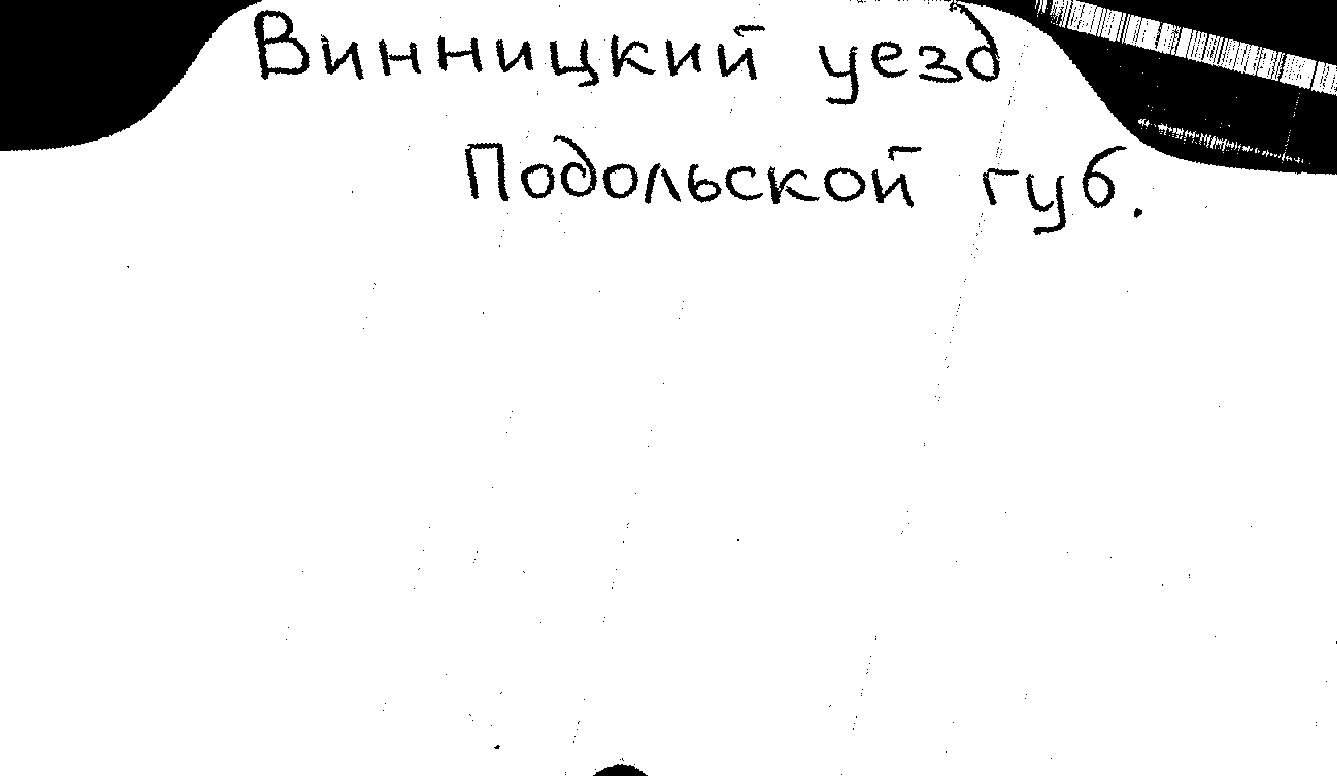 Винницкий уезд
Подольской губ.